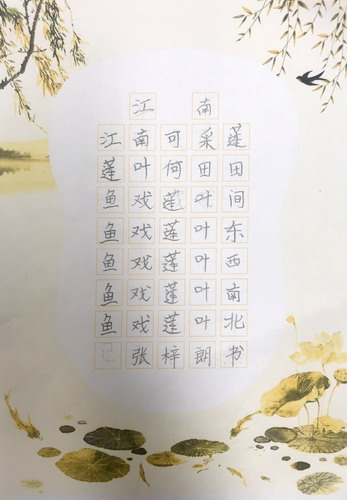 江南
江南可采莲
莲叶何田田
鱼戏莲叶间
鱼戏莲叶东
鱼戏莲叶西
鱼戏莲叶南
鱼戏莲叶北
张梓朗书